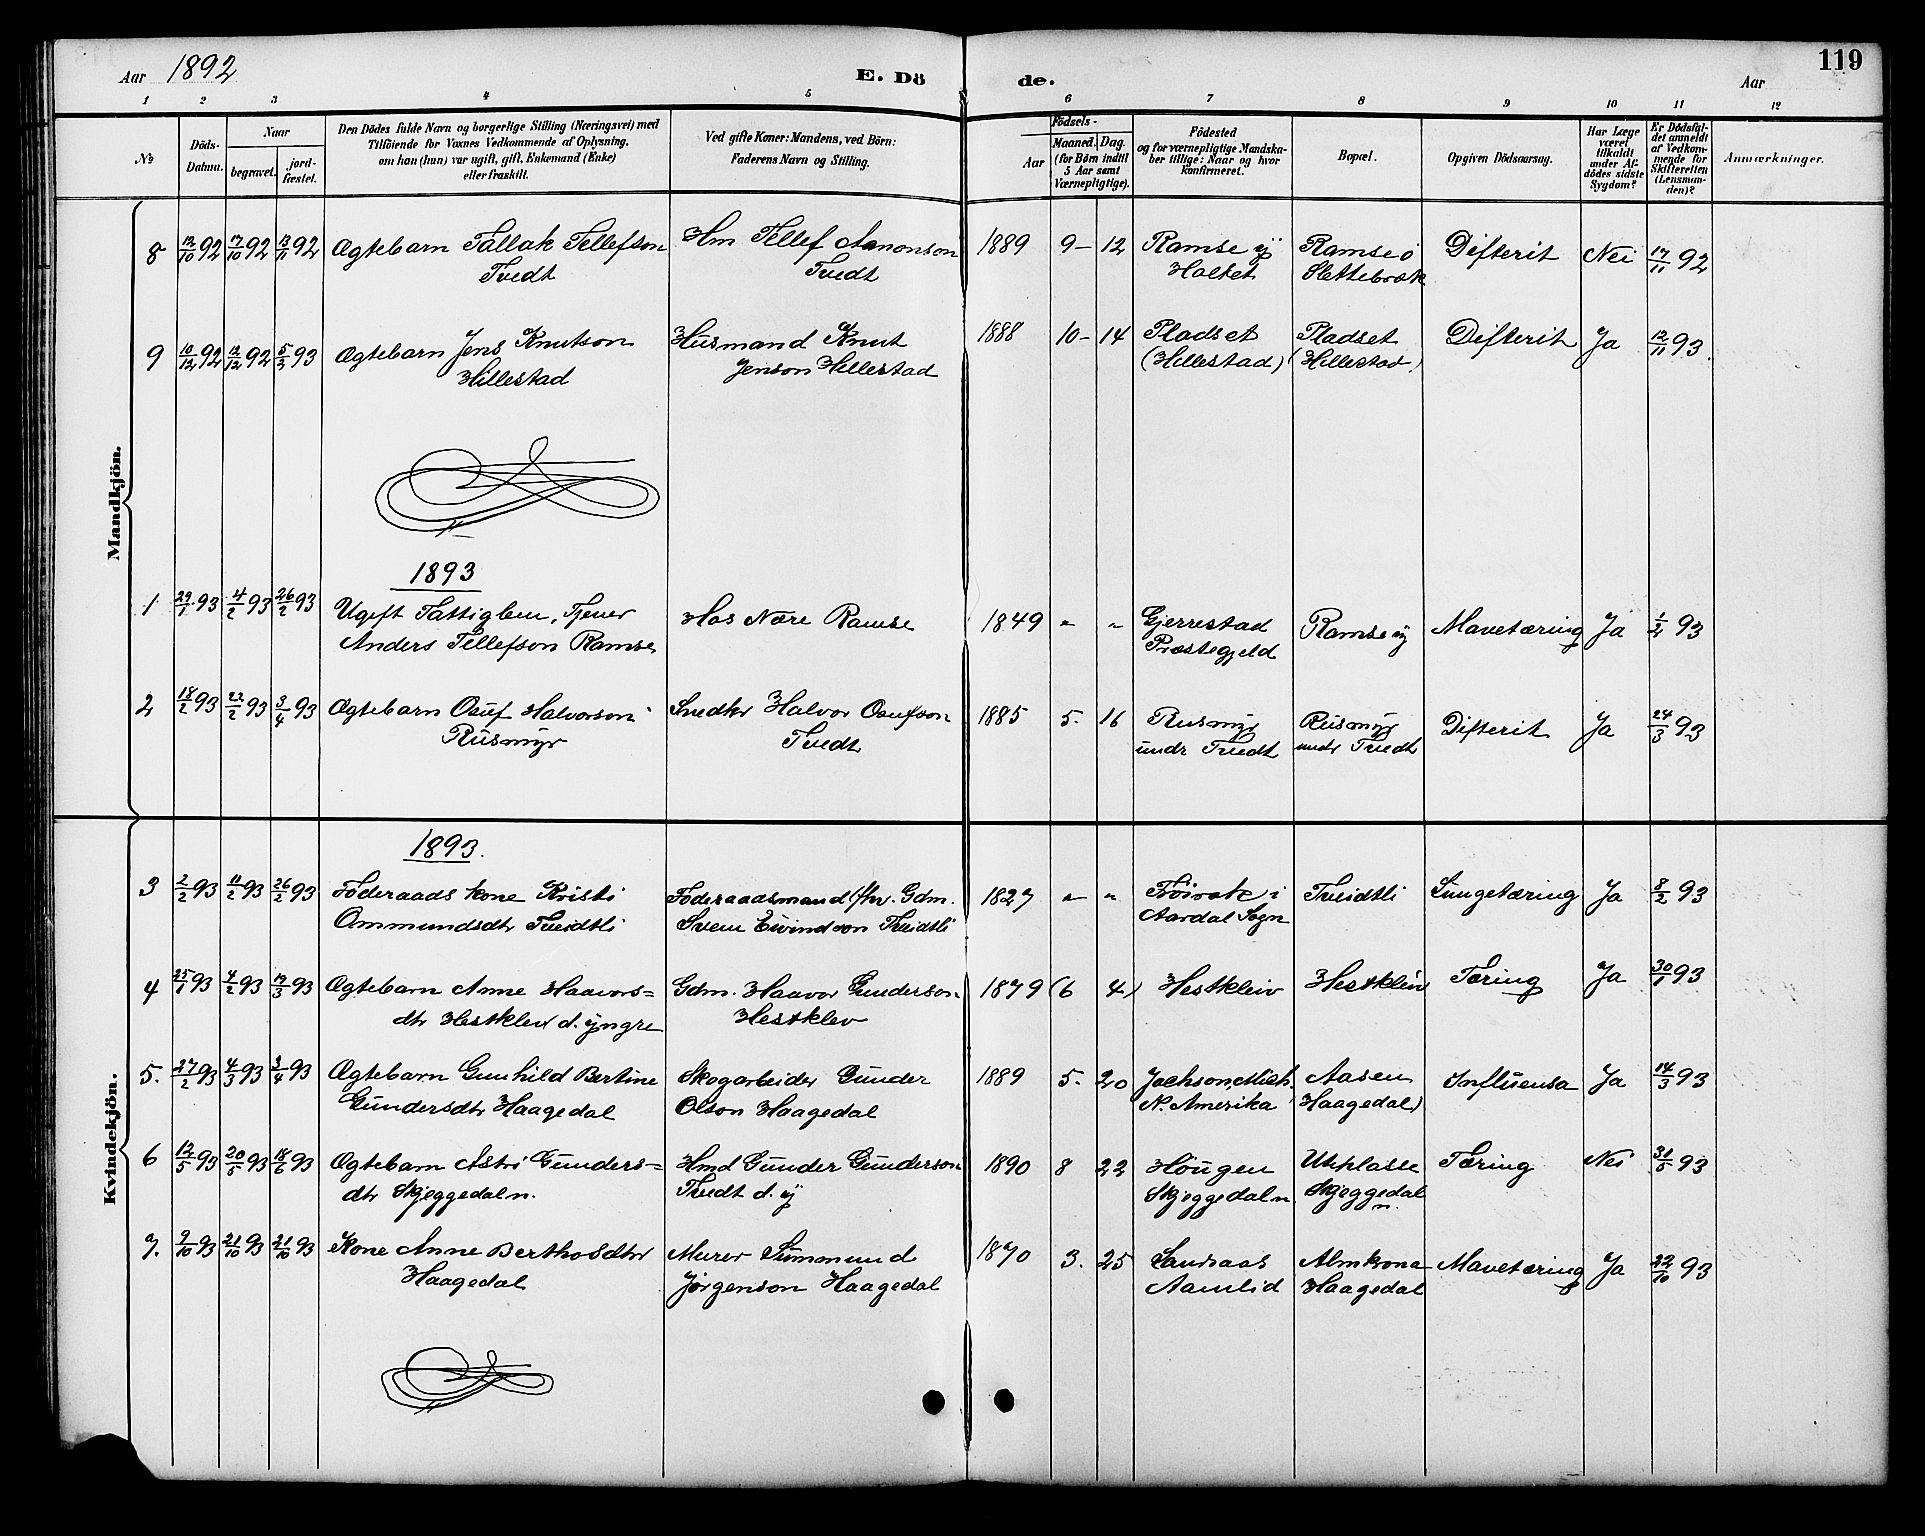 Aar 1892
E. Dö
de.
Aar
119
1 2 3 4 5 6 7 8 9 10 11 12
No
Döds-Datum.
Naar
begravet.
jord-fæstet.
Den Dödes fulde Navn og borgerlige Stilling (Næringsvei) med
Tilföiende for Voxnes Vedkommende af Oplysning.
om han (hun) var ugift, gift, Enkemand (Enke)
eller fraskilt.
Ved gifte Koner: Mandens, ved Börn:
Faderens Navn og Stilling.
Födsels-
Aar
Maaned. Dag.
(for Börn indtil
5 Aar samt
Værnepligtige).
Födested
og for værnepligtige Mandska-
ber tillige: Naar og hvor
konfirmeret.
Bopæl.
Opgiven Dödsaarsag.
Har Læge
været
tilkaldt
under Af-
dödes sidste
Sygdom?
Er Dödsfal-
det anmeldt
af Vedkom-
mende for
Skifteretten
(Lensman-
den)?
Anmærkninger.
Mandkjön.
8 12/10 92 17/10 92 13/11 92 Ægtebarn Tallak Tellefson Hm Tellef Aanonson 1889 9– 12 Ramse y Ramse ö Difterit Nei 17/11 92
Tvedt Tvedt Holtet Slettebræk
9 10/12 92 12/12 92 5/3 93 Ægtebarn Jens Knutson Husmand Knut 1888 10– 14 Pladset Pladset Difterit Ja 12/11 93
Hillestad Jenson Hillestad (Hillestad) (Hillestad)
1893
1 29/1 93 4/2 93 26/2 93 Ugift Fattiglem, Tjener Hos Nære Ramse 1849 " " Gjerrestad Ramse y Mavetæring Ja 1/2 93
Anders Tellefson Ramse Præstegjeld
2 18/2 93 22/2 93 3/4 93 Ægtebarn Osuf Halvorson Snedkr Halvor Osufson 1885 5. 16 Rusmyr Rusmyr Difterit Ja 24/3 93
Rusmyr Tvedt undr Tvedt undr Tvedt
Kvindekjön.
1893.
3 2/2 93 11/2 93 26/2 93 Föderaads kone Kristi Föderaadsmand fhv. Gdm. 1827 " " i Tveidtli Lungetæring Ja 8/2 93
Ommundsdtr Tveidtli Svein Eivindson Tveidtli Aardal Sogn
4 25/1 93 4/2 93 12/3 93 Ægtebarn Anne Haavors= Gdm. Haavor Gunderson 1879 (6 4) Hestkleiv Hestkleiv Tæring Ja 30/1 93
dtr Hestklev d. yngre Hestklev
5. 27/2 93 4/3 93 3/4 93 Ægtebarn Gunhild Bertine Skogarbeider Gunder 1889 5. 20 Jachson, Mich. Aasen Influensa Ja 14/3 93
Gundersdtr Haagedal Olson Haagedal N. Amerika Haagedal)
6 12/5 93 20/5 93 18/6 93 Ægtebarn Astri Gunders= Hmd Gunder Gunderson 1890 8 22 Höugen Uteplasse Tæring Nei 31/5 93
dtr Skjeggedal n. Tvedt d. y Skjeggedal n Skjeggedal n.
7. 9/10 93 21/10 93 21/10 93 Kone Anne Berthosdtr Murer Summund 1870 3. 25 Sandaas Almkona Mavetæring Ja 22/10 93
Haagedal Jörgenson Haagedal Aamlid Haagedal